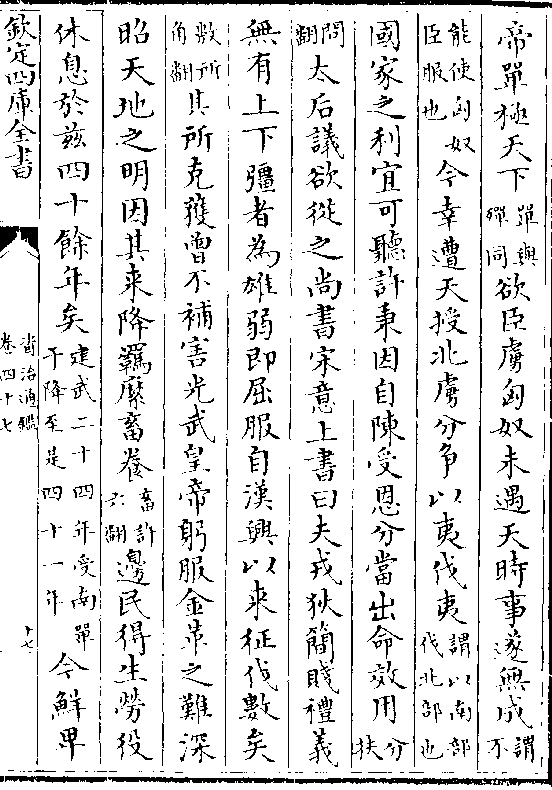 帝單極天下單與殫同欲臣虜匈奴未遇天時事遂無成謂不
能使匈奴臣服也今幸遭天授北虜分爭以夷伐夷謂以南部伐北部也
國家之利宜可聽許秉因自陳受恩分當出命效用分扶
問翻太后議欲從之尚書宋意上書曰夫戎狄簡賤禮義
無有上下彊者為雄弱即屈服自漢興以來征伐數矣
數所角翻其所克獲曾不補害光武皇帝躬服金革之難深
昭天地之明因其來降羈縻畜養畜許六翻邊民得生勞役
休息於兹四十餘年矣建武二十四年受南單于降至是四十一年今鮮卑
欽定四庫全書
資治通鑑
卷四十七
十七